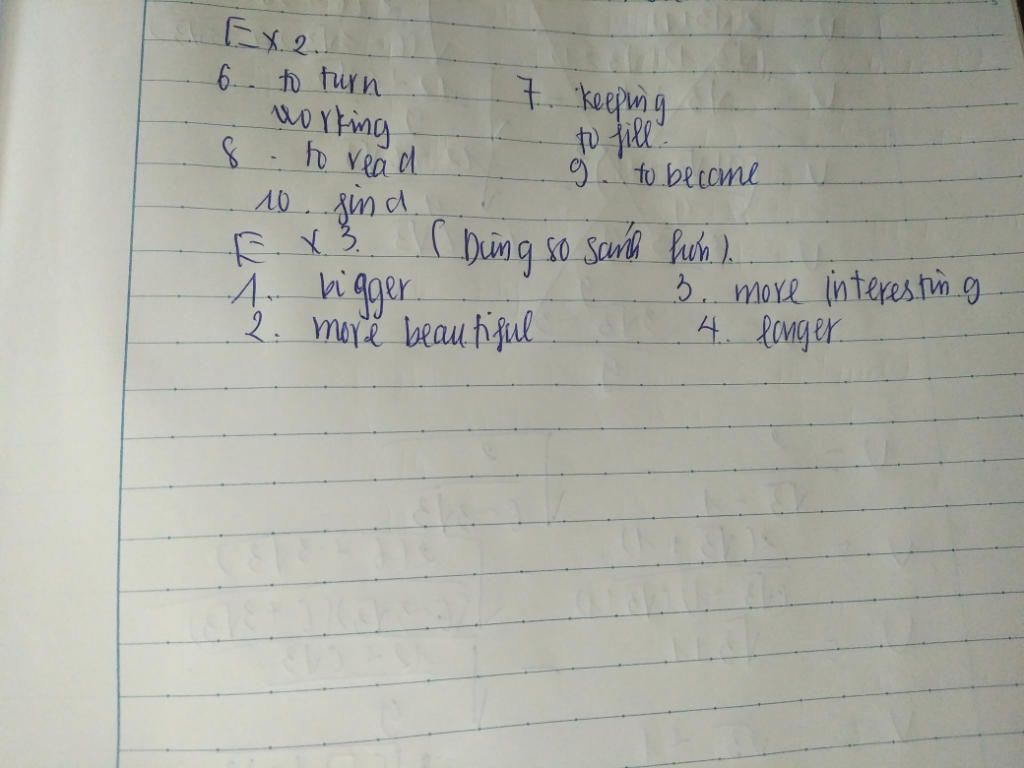 Ex 2.
6. to turn
working
7. keeping
to fill.
8. to read
9. to become
10. find
Ex 3. (Dùng so sánh hơn).
1. bigger.
2. more beautiful
3. more interesting
4. longer.